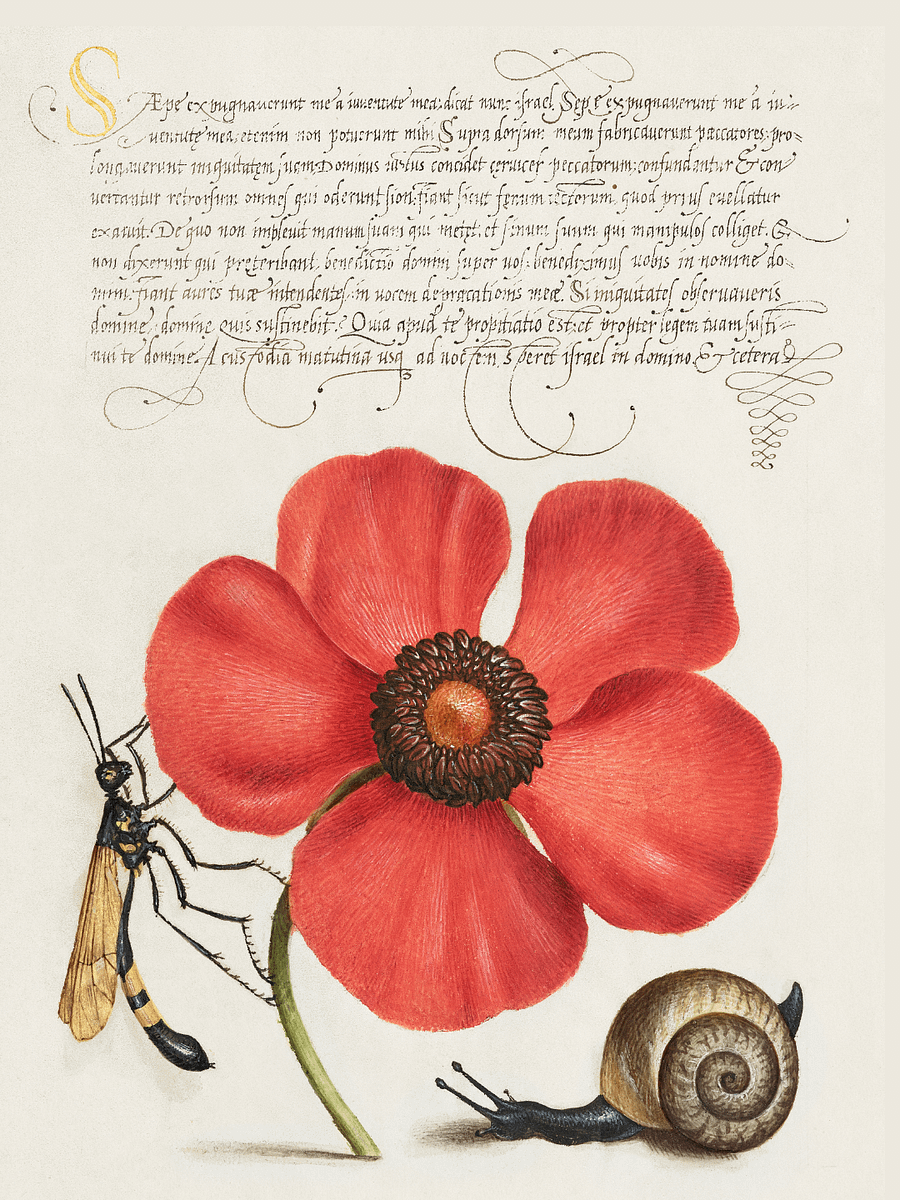 Sæpe expugnaverunt me à iuventute mea: dicat nunc israel. Sepe expugnaverunt me à iu-
ventute mea: etenim non potuerunt mihi. Supra dorsum meum fabricaverunt pæccatores: pro-
longaverunt iniquitatem suam. Dominus iustus concidet cervices peccatorum: confundantur & con
vertantur retrorsum omnes qui oderunt sion. fiant sicut fęnum tectorum, quod prius evellatur
exaruit. De quo non implevit manum suam qui metet: et sinum suum qui manipulos colliget. &
non dixerunt qui pręteribant, benedictio domini super vos: benediximus vobis in nomine do-
mini. fiant aures tuæ intendentes: in vocem depræcationis meæ. Si iniquitates observaveris
domine, domine quis sustinebit. Quia apud te propitiatio est: et propter legem tuam susti-
nui te domine. A custodia matutina usq ad noctem, speret israel in domino. & cetera